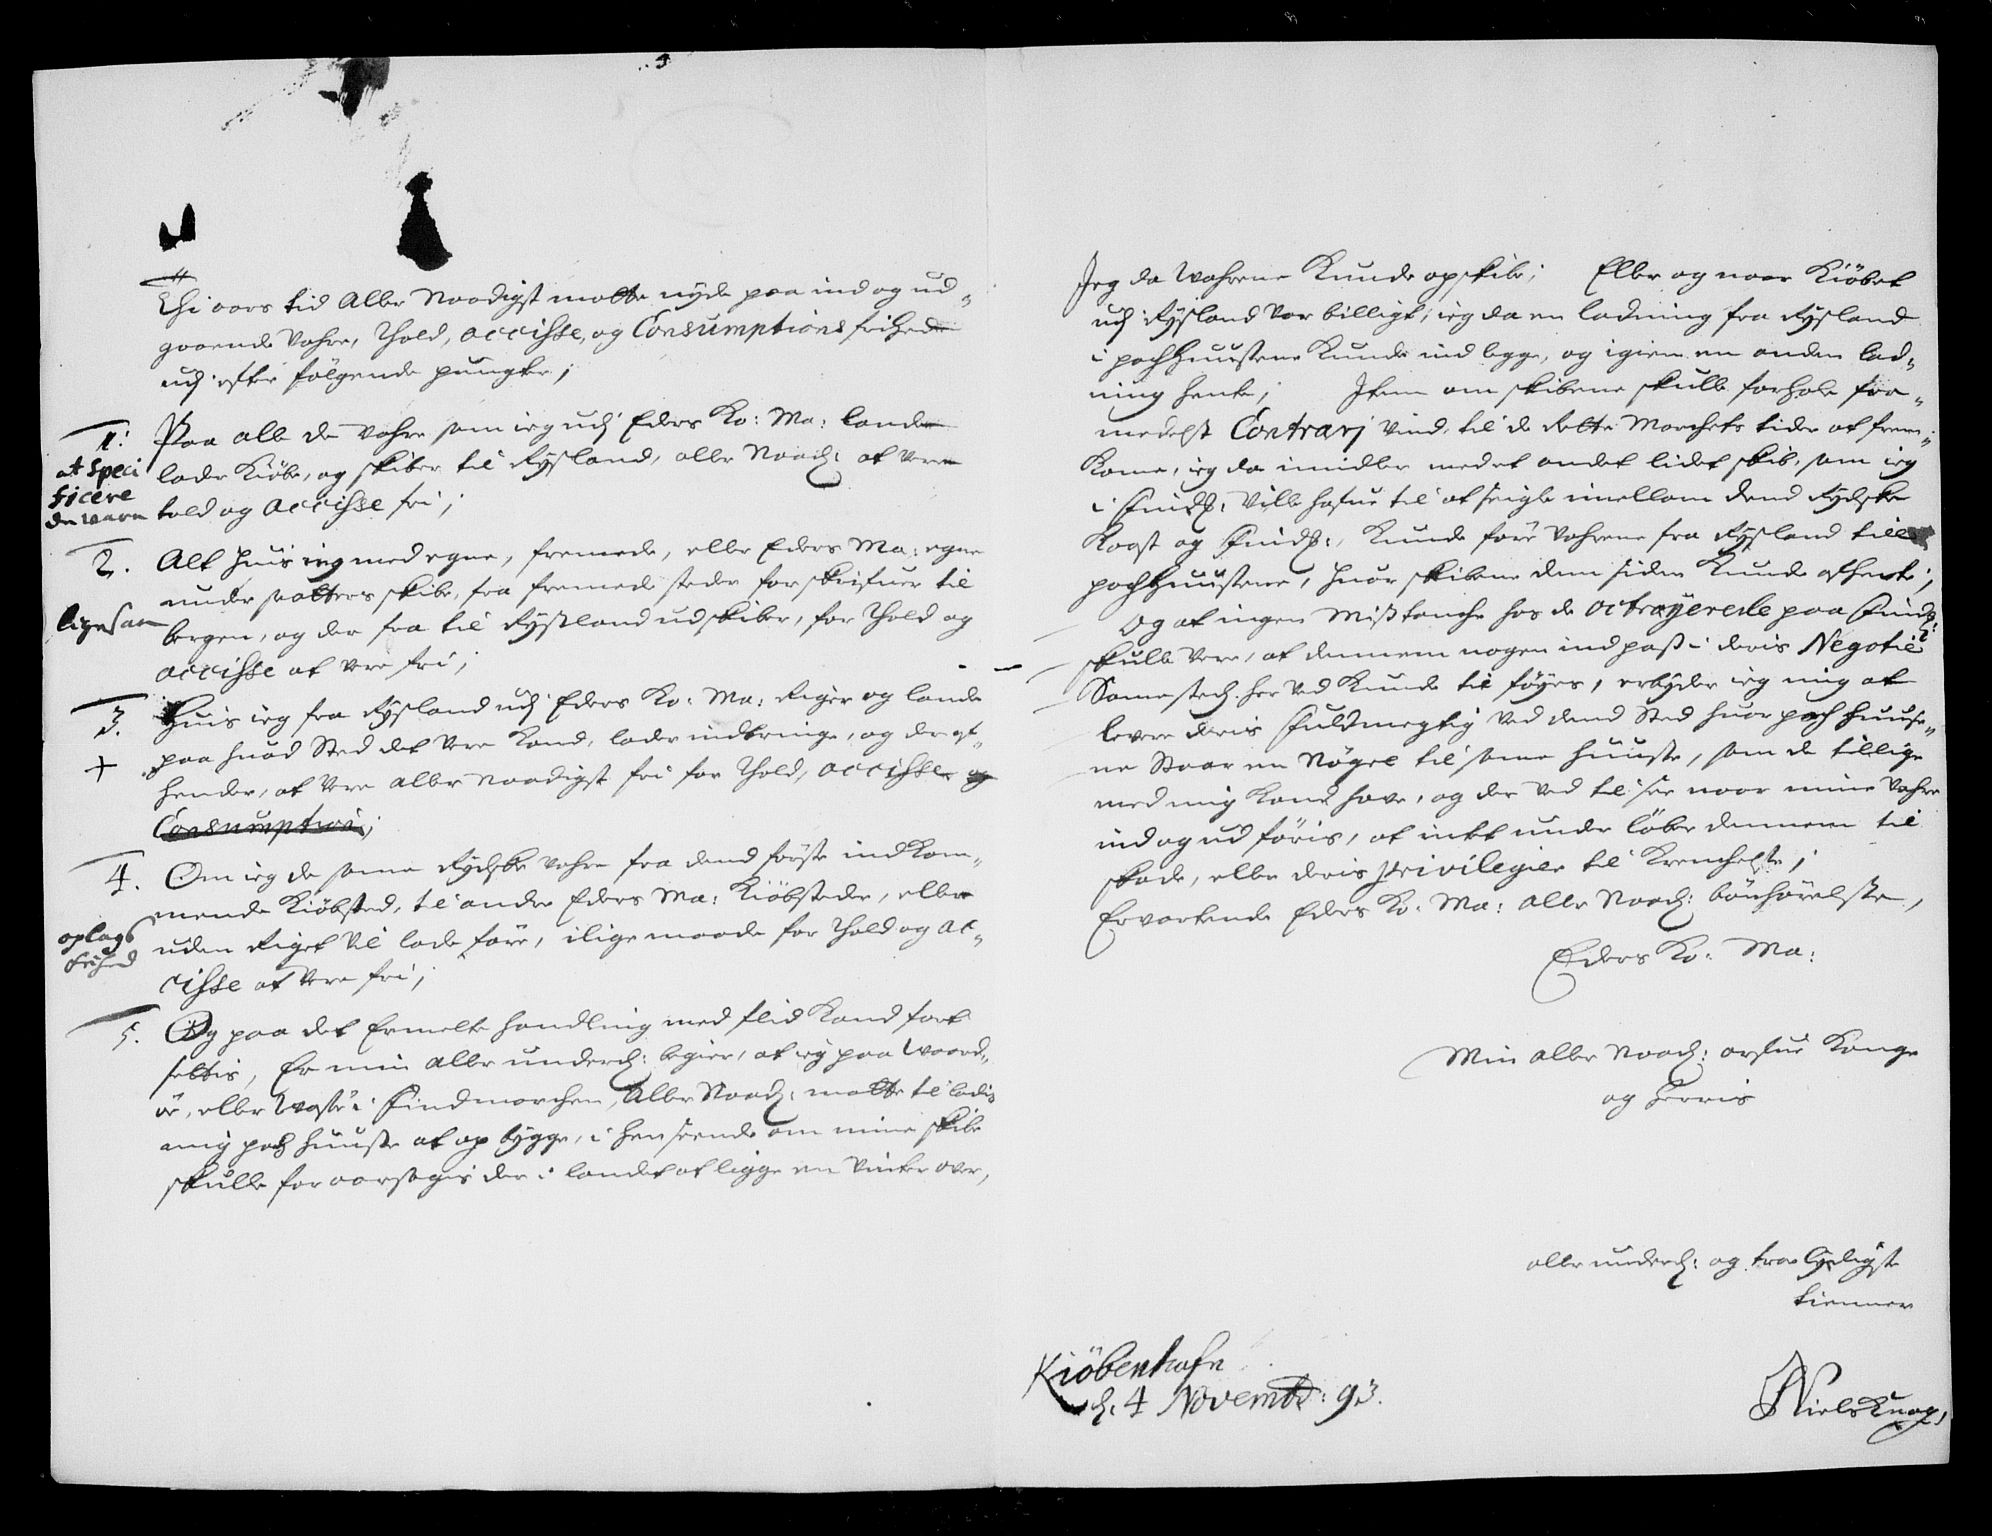 Thi aars tid Aller Naadigst motte nyde paa ind og ud-
gaaende Vahre, Thold, accihse, og Consumptions frihed
udj efter følgende pungte;
1. Paa alle de Vahre som ieg udj Eders Ko: Ma: lande
lader Kiøbe, og skiber til Rysland, aller Naad: at Vere
told og accihse fri;
at Speci
ficere
de ware
2. Alt huis ieg med egne, fremede, eller Eders Ma: egne
undersaatters skibe, fra fremede steder forskrifuer til
bergen, og der fra til Rysland udskiber, for Thold og
accihse at Vere fri;
ligesaa
3. Huis ieg fra Rysland udj Eders Ko: Ma: Riger og lande
paa huad Sted det Vere Kand, lader indbringe, og der af-
hender, at Vere aller naadigst fri for Thold, accihse og
Consumption;
+
4. Om ieg de same Rydske Vahre fra dend første indKom-
mende Kiøbsted, til andre Eders Ma: Kiøbsteder, eller
uden Riget Vil lade føre, i lige maade for Thold og ac-
cihse at Vere fri;
oplags
frihed
5. Og paa det Ermelte handling med flid Kand fort
settis, Er min aller underd: begier, at ieg paa Waard-
øe, eller Wasø i Findmarchen, Aller Naad: motte tilladis
mig pachhuuse at op bygge, i henseende om mine skibe
skulle foraarsagis der i landet at ligge en Vinter over,
Jeg da Vahrene Kunde opskibe; Eller og naar Kiøbet
udj Rysland Var billigt, ieg da en ladning fra Rysland
i pachhuusene Kunde ind legge, og igien en anden lad-
ning hente; Item om skibene skulle forhole for-
medelst Contrarj Vind, til de rette Marchets tider at frem-
Kome, ieg da imidler med et andet lidet skib, som ieg
i Findm: Ville hafue til at seigle imellom dend Rydske
Koost og Findm:, Kunde føre Vahrene fra Rysland till
pachhuusene, huor skibene dem siden Kunde afhente;
Og at ingen Mistanche hos de Octroyerede paa Findm:
skulle Vere, at dennem nogen indpas i deris Negotie
Samesteds her Ved Kunde til føyes, erbyder ieg mig at
levere deris fuldmegtig Ved dend Sted huor pachhuuse-
ne Staar en Nøgel til same huuse, som de tillige
med mig Kand have, og der Ved til see naar mine Vahre
ind og ud føris, at intet under løber dennem til
skade, eller deris privilegier til Krenchelse;
Ervartende Eders Ko: Ma: aller Naad: bønhørelse,
Eders Ko: Ma:
Min aller Naad: arfue Konge
og Herris
aller underd: og troe lydigste
tienner
Kiöbenhafn
d. 4 Novembr: 93.
Niels Knag